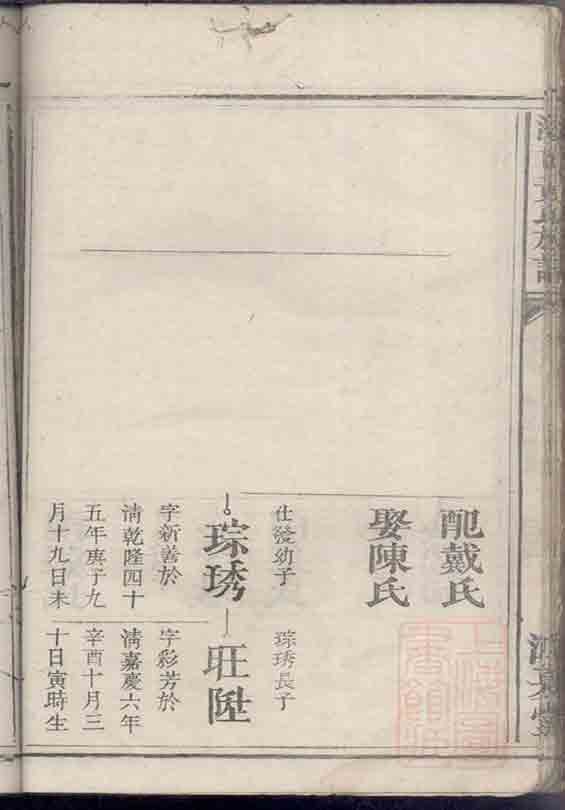 配戴氏
娶陳氏
仕發幼子
琮琇
字新善於
清乾隆四十
五年庚子九
月十九日未
琮琇長子
旺陞
字彩芳於
清嘉慶六年
辛酉十月三
十日寅時生